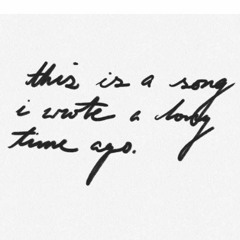 this is a song
i wrote a long
time ago.